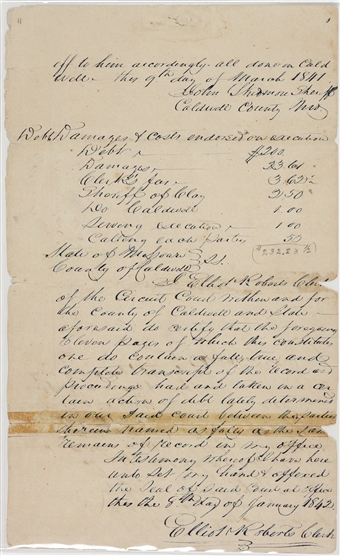 11
off to him accordingly all done in Cald
well this 9th day of March 1841
John Shff
Caldwell County Mo
Debt Damages & Costs endorsed on execution
Debt $200
Damages 23.61
Clerks fees 3.62½
Sheriff of Clay 2.50
Do Caldwell 1.00
Serving execution 1.00
Calling each party 50
$232.23½
State of Missouri
County of Caldwell Sct.
I Elliott Roberts Clk
of the Circuit Court within and for
the County of Caldwell and State
aforesaid do certify that the foregoing
Eleven pages of which this constitutes
one do contain a full, true, and
complete transcript of the record and
Proceedings had and taken in a cer
tain action of debt lately determined
in our said Court between the parties
therein named as fully as the same
remains of Record in my office
In testimony whereof I have here
unto Set my hand & affixed
the Seal of Said Court at office
this the 8th day of January 1842
Elliott Roberts Clerk